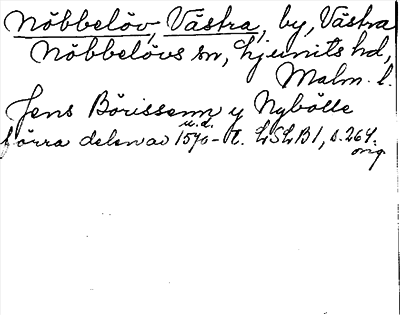 Nöbbelöv, Västra, by, Västra
Nöbbelövs sn, Ljunits hd,
Malm. l.
Jens Börissenn y Nybölle
u.d.
förra delen av 1570-t. LSLB1, s. 264.
orig.